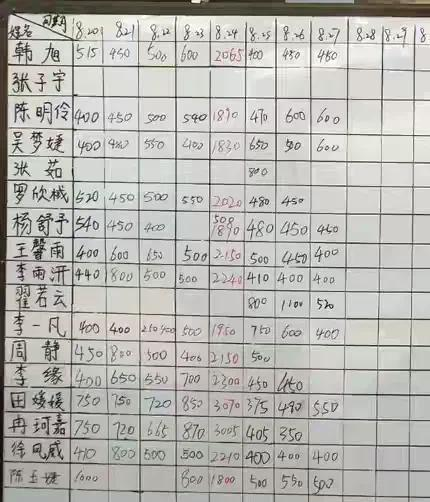 姓名 8.20 8.21 8.22 8.23 8.24 8.25 8.26 8.27 8.28 8.29 8
韩旭 515 450 500 600 2065 400 450 450
张子宇
陈明伶 400 450 500 540 1890 470 600 600
吴梦婕 400 480 550 400 1830 650 500 600
张茹 800
罗欣械 520 450 500 550 2020 480 450
杨舒予 540 450 400 500 1890 480 450 450
王馨雨 400 600 650 500 2150 500 450 400
李雨汧 440 1800 500 500 2240 410 400 400
翟若云 800 1100 520
李一凡 400 400 250400 500 1950 750 600 400
周静 450 800 500 400 2150 500
李缘 400 650 550 700 2300 450 450
田媛媛 750 750 720 850 3070 375 490 550
冉珂嘉 750 720 665 870 3005 405 350
徐凤威 410 800 500 500 2210 400 400 400
陈玉婕 1000 800 1800 500 550 500